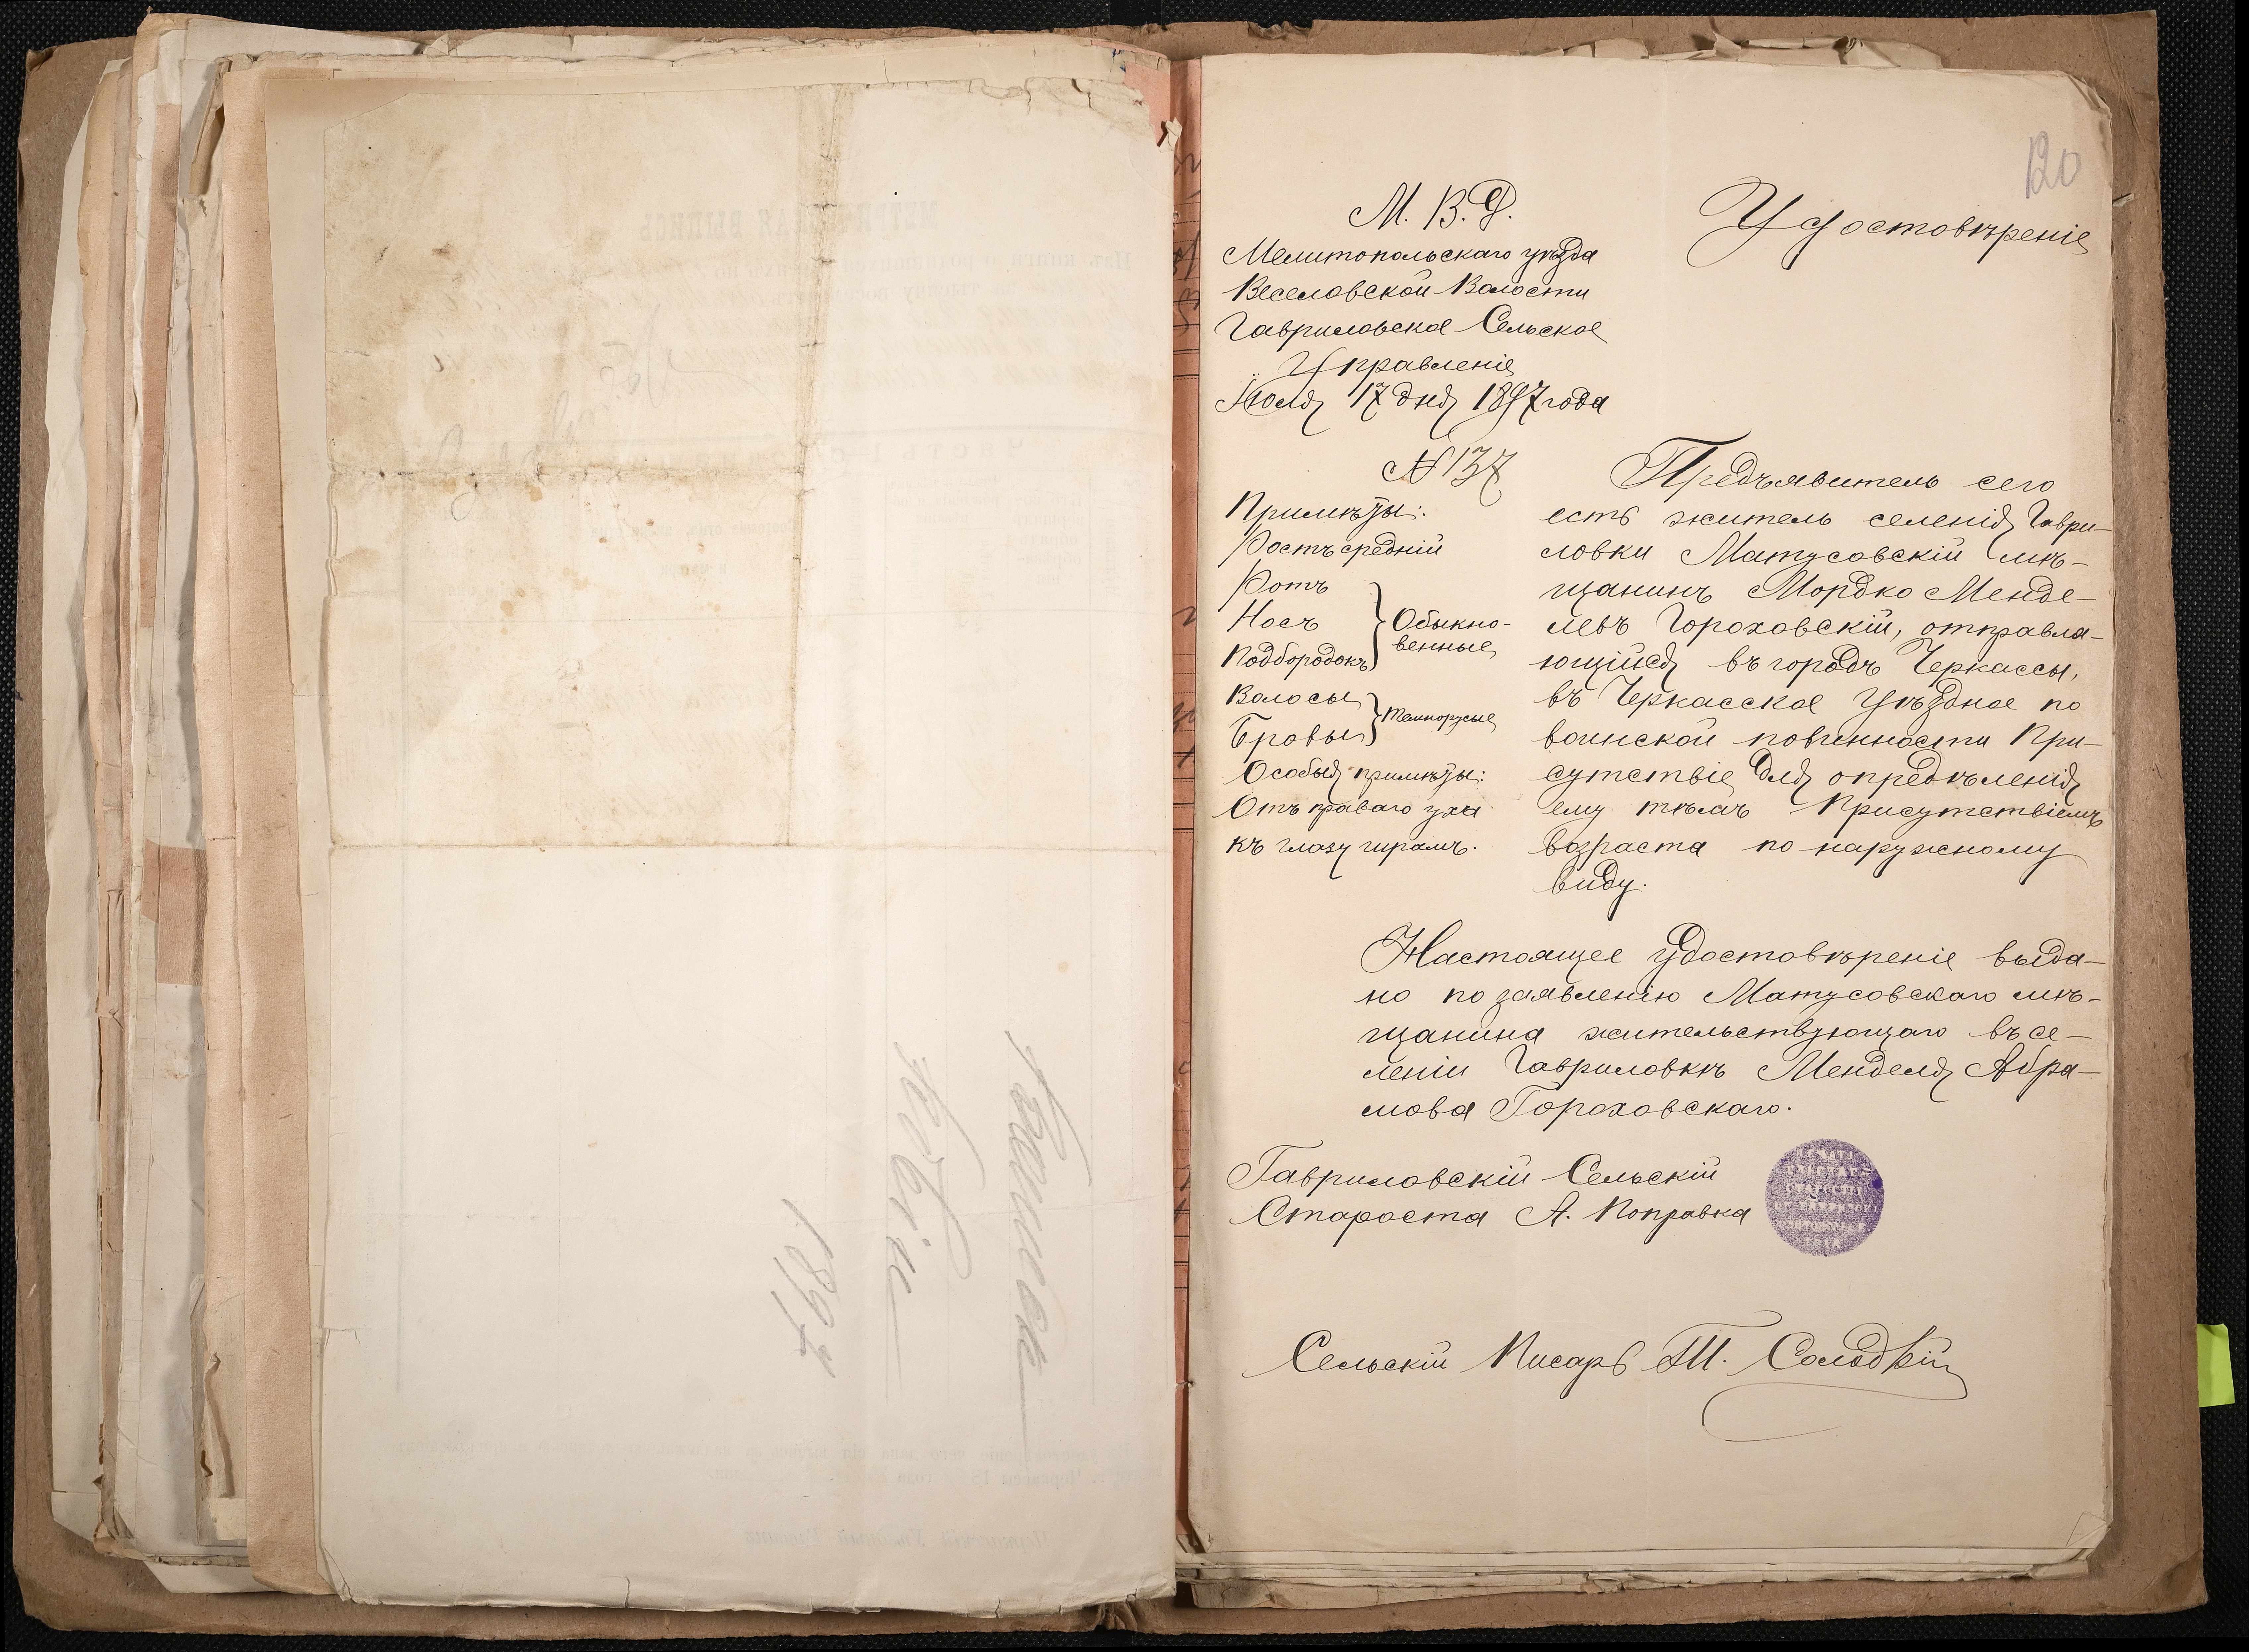 120
М. В. Д.
Мелитопольскаго уѣзда
Веселовской Волости
Гавриловское Сельское
Управленіе
Іюля 17 дня 1897 года
№ 137
Удостовѣреніе
Примѣты:
Ростъ средній
Ротъ
Носъ
Подбородокъ
Обыкно-
венные
Волосы
Бровы
темнорусые
Особыя примѣты:
Отъ праваго уха
къ глазу шрамъ.
Предъявитель сего
есть житель селенія Гаври-
ловки Матусовскій мѣ-
щанинъ Мордко Менде-
левъ Гороховскій, отправля-
ющійся въ городъ Черкассы,
въ Черкасское Уѣздное по
воинской повинности При-
сутствіе для опредѣленія
ему тѣмъ Присутствіемъ
возраста по наружному
виду.
Настоящее удостовѣреніе выда-
но по заявленію Матусовскаго мѣ-
щанина жительствующаго въ се-
леніи Гавриловкѣ Менделя Абра-
мова Гороховскаго.
Гавриловскій Сельскій
Староста А. Поправка
Сельскій Писарь Т. Солодкій
1897